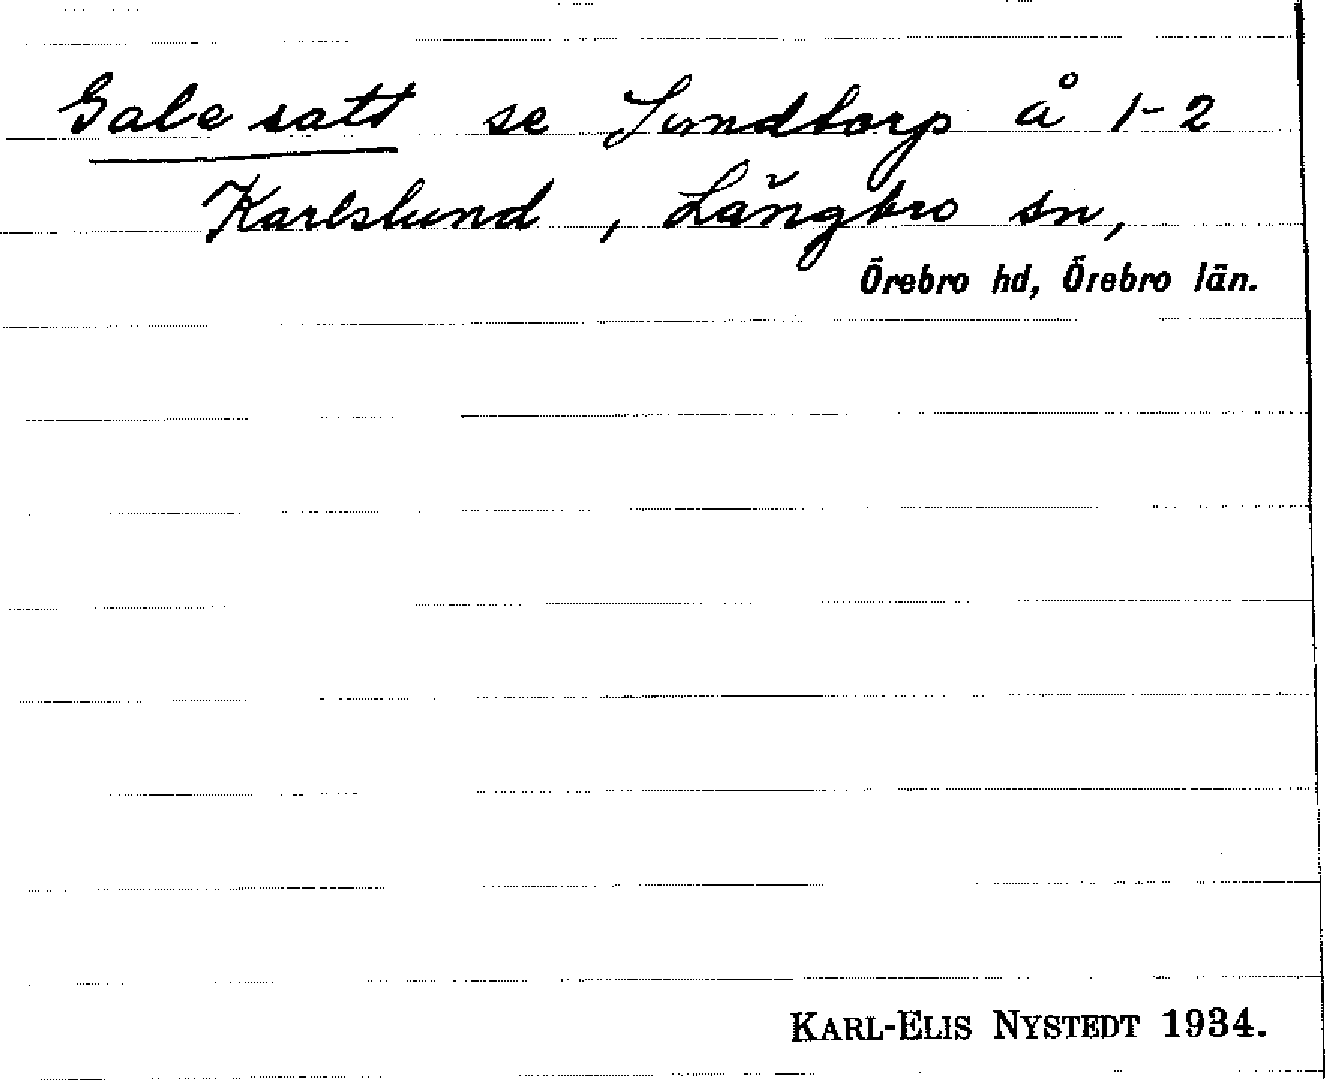 Gale satt se Lundtorp å 1-2
Karlslund, Längbro sn,
Örebro hd, Örebro län.
KARL-ELIS NYSTEDT 1934.